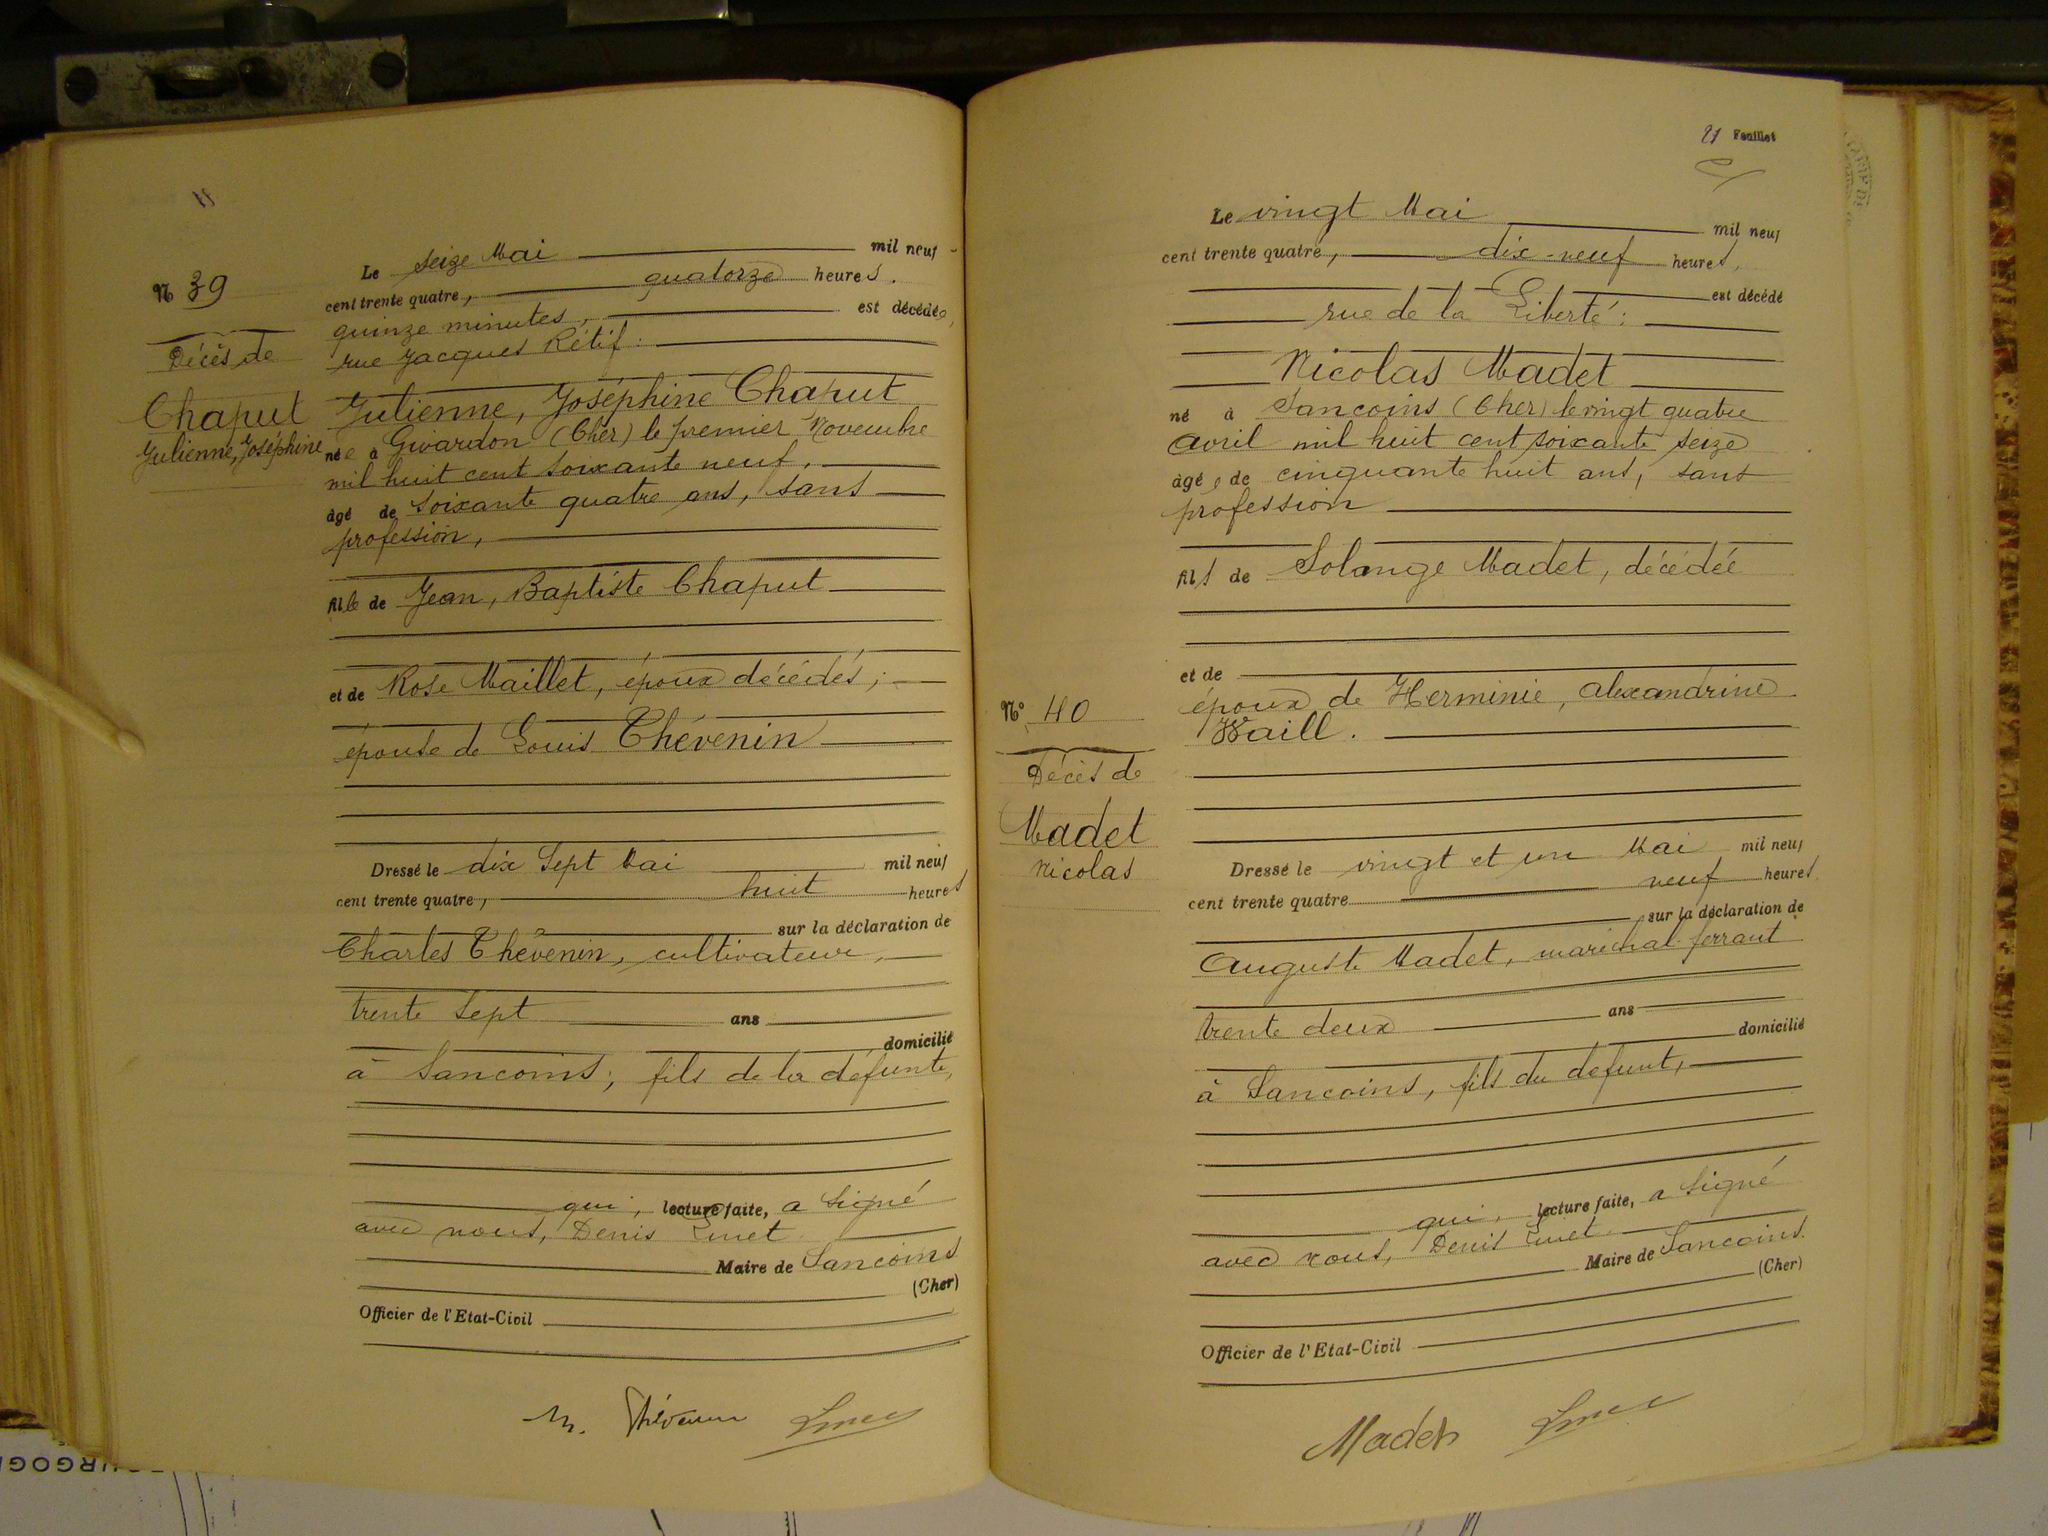 N 39
Décès de
Chaput
Julienne, Joséphine
Le seize Mai mil neuf
cent trente quatre, quatorze heures.
quinze minutes, est décédée,
rue Jacques Rétif :
Julienne, Joséphine Chaput
née à Givardon (Cher) le premier Novembre
mil huit cent soixante neuf,
âgé de soixante quatre ans, sans
profession,
fille de Jean, Baptiste Chaput
et de Rose Maillet, époux décédés ;
épouse de Louis Thévenin
Dressé le dix sept Mai mil neuf
cent trente quatre, huit heures
sur la déclaration de
Charles Thévenin, cultivateur,
trente sept ans
domicilié
à Sancoins, fils de la défunte,
qui, lecture faite, a signé
avec nous, Denis
Maire de Sancoins
(Cher)
Officier de l'Etat-Civil
Thévenin
21 Feuillet
N° 40
Décès de
Madet
Nicolas
Le vingt Mai mil neuf
cent trente quatre, dix-neuf heures,
est décédé
rue de la Liberté :
Nicolas Madet
né à Sancoins (Cher) le vingt quatre
avril mil huit cent soixante seize
âgé, de cinquante huit ans, sans
profession
fils de Solange Madet, décédée
et de
époux de Herminie, Alexandrine
Waill.
Dressé le vingt et un Mai mil neuf
cent trente quatre neuf heures
sur la déclaration de
Auguste Madet, maréchal-ferrant
trente deux ans
domicilié
à Sancoins, fils du défunt,
qui, lecture faite, a signé
avec nous, Denis
Maire de Sancoins.
(Cher)
Officier de l'Etat-Civil
Madet